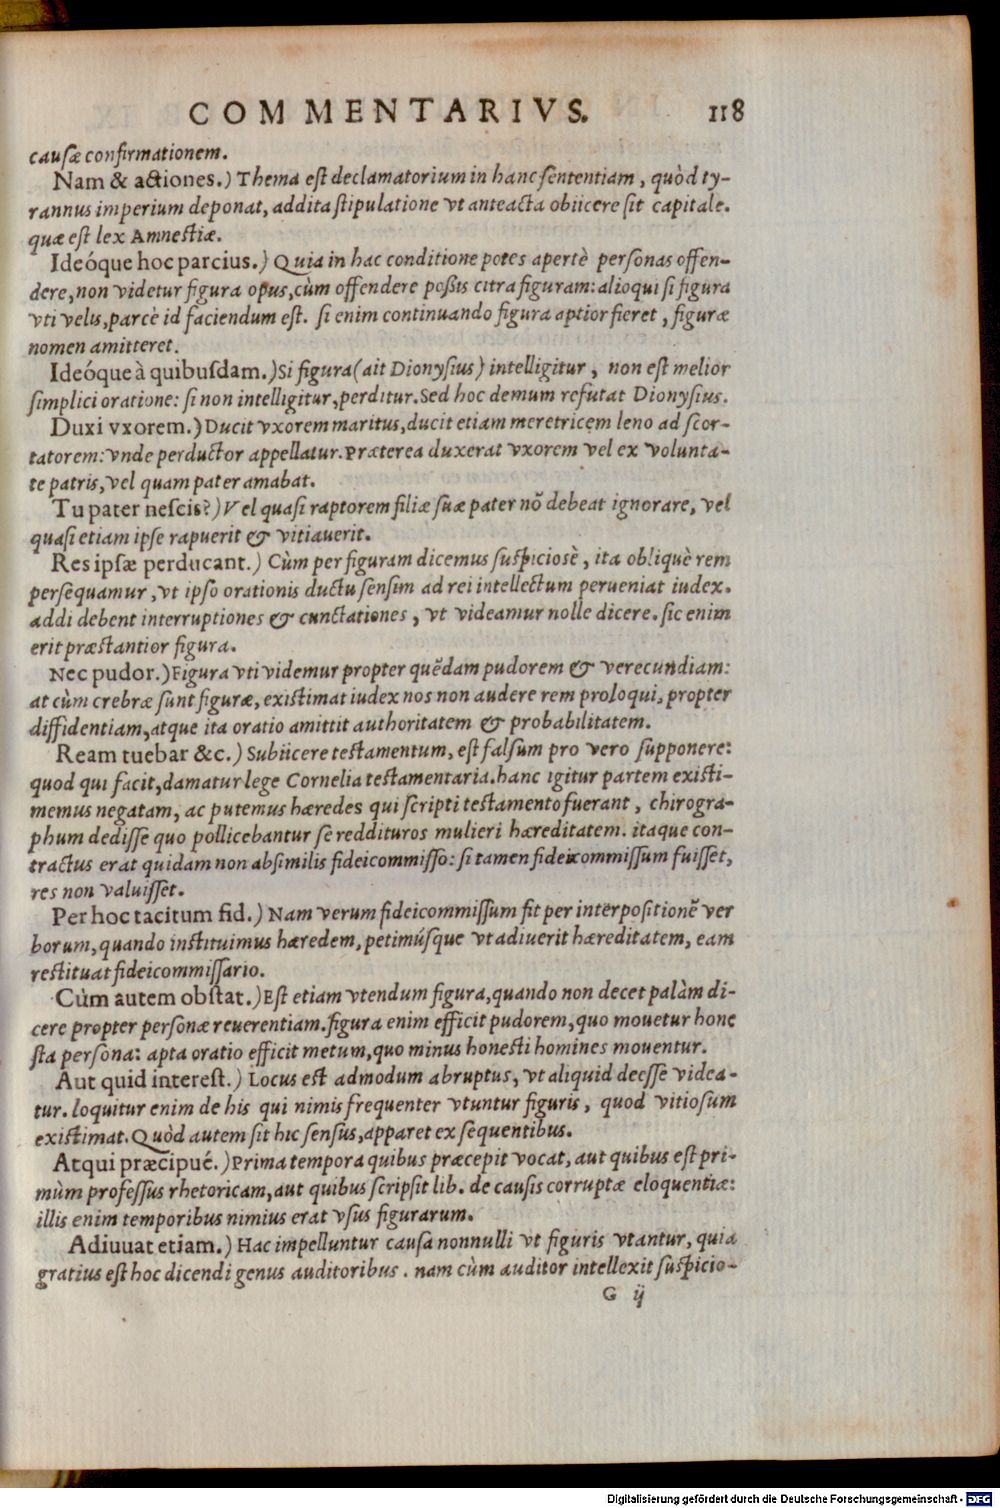 COMMENTARIVS. 118
causæ confirmationem.
Nam & actiones.) Thema est declamatorium in hanc sententiam, quòd ty-
rannus imperium deponat, addita stipulatione vt anteacta obiicere sit capitale.
quæ est lex Amnestiæ.
Ideóque hoc parcius.) Quia in hac conditione potes apertè personas offen-
dere, non videtur figura opus, cùm offendere possis citra figuram: alioqui si figura
vti velis, parcè id faciendum est. si enim continuando figura aptior fieret, figuræ
nomen amitteret.
Ideóque à quibusdam.) Si figura (ait Dionysius) intelligitur, non est melior
simplici oratione: si non intelligitur, perditur. Sed hoc demum refutat Dionysius.
Duxi vxorem.) Ducit vxorem maritus, ducit etiam meretricem leno ad scor-
tatorem: vnde perductor appellatur. Præterea duxerat vxorem vel ex volunta-
te patris, vel quam pater amabat.
Tu pater nescis?) Vel quasi raptorem filiæ suæ pater nõ debeat ignorare, vel
quasi etiam ipse rapuerit & vitiauerit.
Res ipsæ perducant.) Cùm per figuram dicemus suspiciosè, ita obliquè rem
persequamur, vt ipso orationis ductu sensim ad rei intellectum perueniat iudex.
addi debent interruptiones & cunctationes, vt videamur nolle dicere. sic enim
erit præstantior figura.
Nec pudor.) Figura vti videmur propter quẽdam pudorem & verecundiam:
at cùm crebræ sunt figuræ, existimat iudex nos non audere rem proloqui, propter
diffidentiam, atque ita oratio amittit authoritatem & probabilitatem.
Ream tuebar &c.) Subiicere testamentum, est falsum pro vero supponere:
quod qui facit, damatur lege Cornelia testamentaria. hanc igitur partem existi-
memus negatam, ac putemus hæredes qui scripti testamento fuerant, chirogra-
phum dedisse quo pollicebantur se reddituros mulieri hæreditatem. itaque con-
tractus erat quidam non absimilis fideicommisso: si tamen fideicommissum fuisset,
res non valuisset.
Per hoc tacitum fid.) Nam verum fideicommissum fit per interpositionẽ ver
borum, quando instituimus hæredem, petimúsque vt adiuerit hæreditatem, eam
restituat fideicommissario.
Cùm autem obstat.) Est etiam vtendum figura, quando non decet palàm di-
cere propter personæ reuerentiam. figura enim efficit pudorem, quo mouetur hone
sta persona: apta oratio efficit metum, quo minus honesti homines mouentur.
Aut quid interest.) Locus est admodum abruptus, vt aliquid deesse videa-
tur. loquitur enim de his qui nimis frequenter vtuntur figuris, quod vitiosum
existimat. Quòd autem sit hic sensus, apparet ex sequentibus.
Atqui præcipué.) Prima tempora quibus præcepit vocat, aut quibus est pri-
mùm professus rhetoricam, aut quibus scripsit lib. de causis corruptæ eloquentiæ:
illis enim temporibus nimius erat vsus figurarum.
Adiuuat etiam.) Hac impelluntur causa nonnulli vt figuris vtantur, quia
gratius est hoc dicendi genus auditoribus. nam cùm auditor intellexit suspicio-
G ij
Digitalisierung gefördert durch die Deutsche Forschungsgemeinschaft - DFG